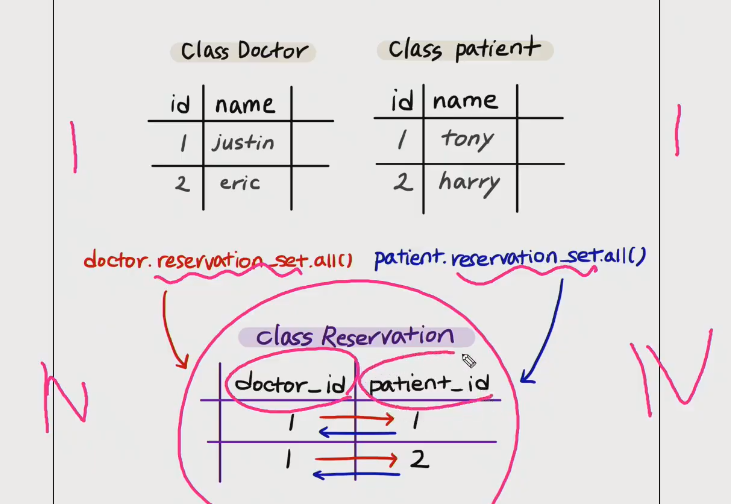 Class Doctor
Class patient
id name
1 justin
2 eric
id name
1 tony
2 harry
1
1
doctor.reservation_set.all()
patient.reservation_set.all()
class Reservation
doctor_id patient_id
1 1
1 2
N
N